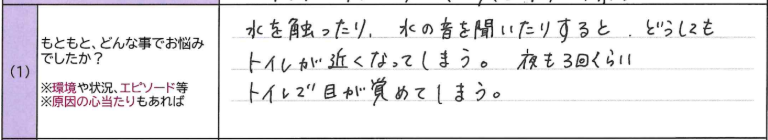 (1)
もともと、どんな事でお悩み
でしたか?
※環境や状況、エピソード等
※原因の心当たりもあれば
水を触ったり、水の音を聞いたりすると、どうしても
トイレが近くなってしまう。夜も3回くらい
トイレで目が覚めてしまう。